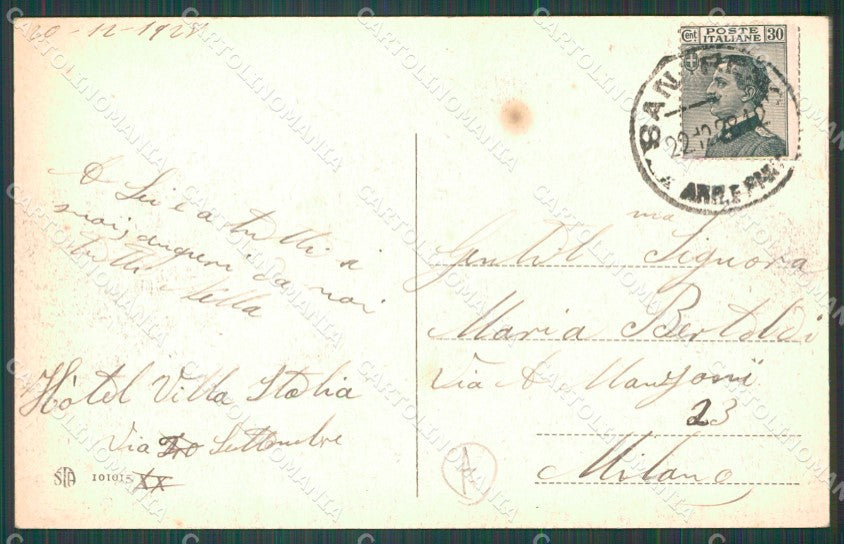 20-12-1928
A Lei e a tutti i
suoi, auguri da noi
tutti
Nella
Hôtel Villa Italia
Via Settembre
XX
STA 10101S
POSTE
ITALIANE
Cent 30
SAN REMO
22.12.28.12
ARR. E PAR.
ma
Gentil Signora
Maria Bertoldi
Via A Manzoni
23
Milano
A
CARTOLINOMANIA